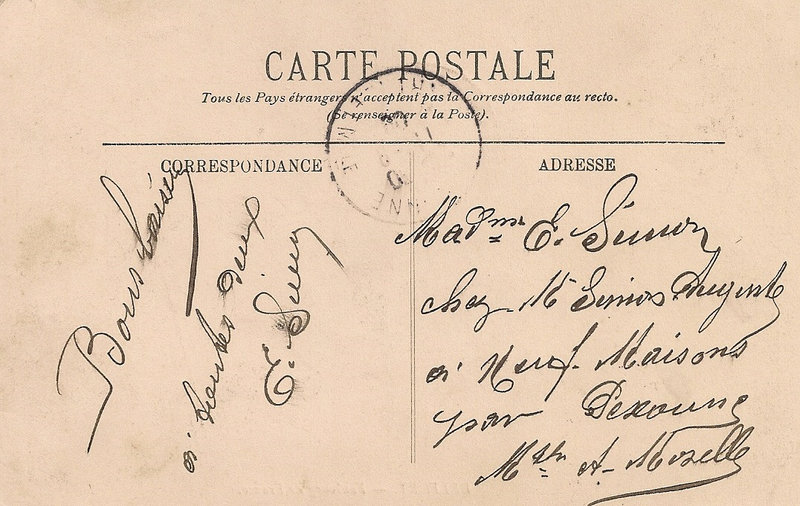 CARTE POSTALE
Tous les Pays étrangers n'acceptent pas la Correspondance au recto.
(Se renseigner à la Poste).
CORRESPONDANCE
Bons baisers
à toutes deux
E. Simon
ADRESSE
Madme E. Simon
chez Mr Simon
à Neuf Maisons
par Pexonne
Mthe & Moselle